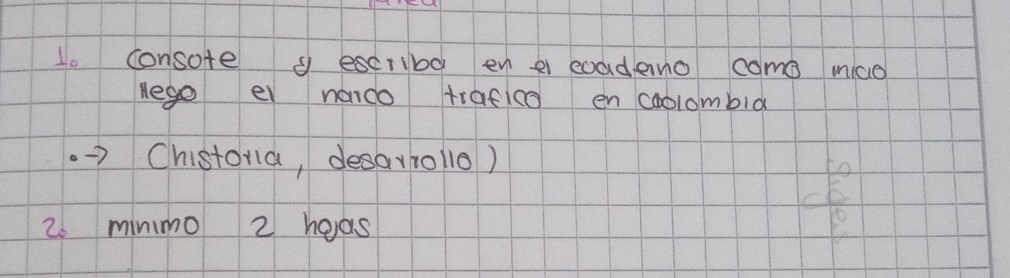 1. consote y escriba en el coaderno como inicio
llego el narco trafico en coolombia
•→ (historia, desarrollo)
2. minimo 2 hojas